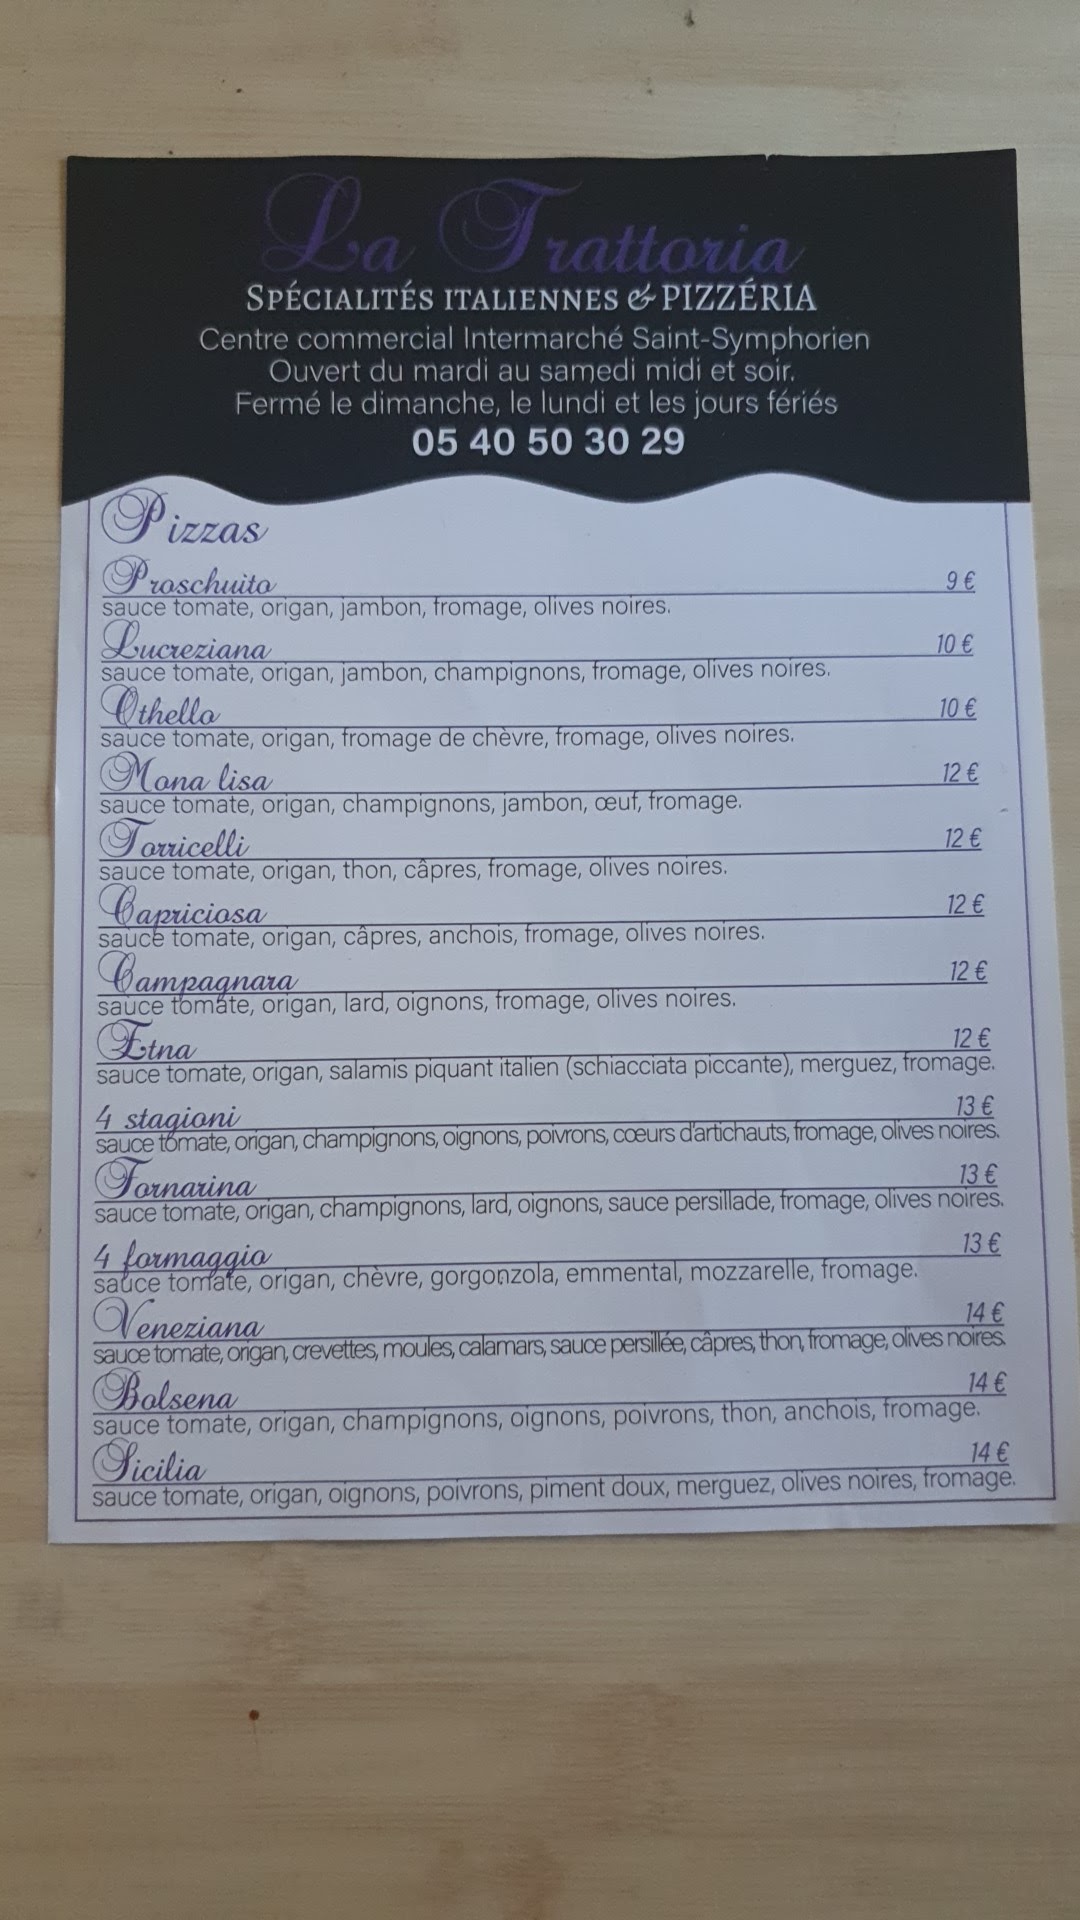 La Trattoria
SPÉCIALITÉS ITALIENNES & PIZZÉRIA
Centre commercial Intermarché Saint-Symphorien
Ouvert du mardi au samedi midi et soir.
Fermé le dimanche, le lundi et les jours fériés
05 40 50 30 29
Pizzas
Proschuito 9 €
sauce tomate, origan, jambon, fromage, olives noires.
Lucreziana 10 €
sauce tomate, origan, jambon, champignons, fromage, olives noires.
Othello 10 €
sauce tomate, origan, fromage de chèvre, fromage, olives noires.
Mona lisa 12 €
sauce tomate, origan, champignons, jambon, œuf, fromage.
Torricelli 12 €
sauce tomate, origan, thon, câpres, fromage, olives noires.
Capriciosa 12 €
sauce tomate, origan, câpres, anchois, fromage, olives noires.
Campagnara 12 €
sauce tomate, origan, lard, oignons, fromage, olives noires.
Etna 12 €
sauce tomate, origan, salamis piquant italien (schiacciata piccante), merguez, fromage.
4 stagioni 13 €
sauce tomate, origan, champignons, oignons, poivrons, cœurs d'artichauts, fromage, olives noires.
Fornarina 13 €
sauce tomate, origan, champignons, lard, oignons, sauce persillade, fromage, olives noires.
4 formaggio 13 €
sauce tomate, origan, chèvre, gorgonzola, emmental, mozzarelle, fromage.
Veneziana 14 €
sauce tomate, origan, crevettes, moules, calamars, sauce persillée, câpres, thon, fromage, olives noires.
Bolsena 14 €
sauce tomate, origan, champignons, oignons, poivrons, thon, anchois, fromage.
Sicilia 14 €
sauce tomate, origan, oignons, poivrons, piment doux, merguez, olives noires, fromage.